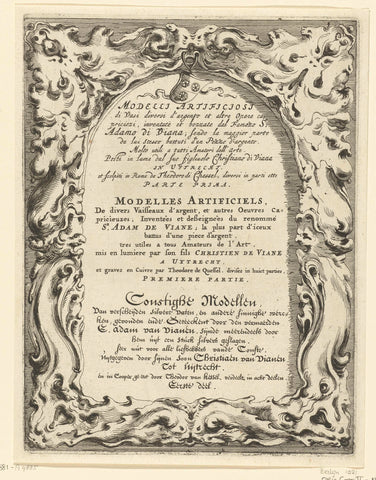 MODELLI ARTIFICIOSI
di Vasi diversi d'argento et altre Opere capriciozi, inventate et
Adamo di Viana; sendo la maggior parte
Molti utili a tutti Amatori dell'Arte
Posti in lume dal suo figliuolo Christiano di Viana
IN UYTRECHT
et scolpiti in Rame da Theodoro di Quessel, diversi in parti otto
PARTE PRIMA.
MODELLES ARTIFICIELS,
De divers Vaisseaux d'argent, et autres Oeuvres Ca-
pricieuzes; Inventées et desseignées du renomme
Sr. ADAM DE VIANE; la plus part d'iceux
battus d'une piece d'argent.
tres utiles a tous Amateurs de l'Art.
mis en lumiere par son fils CHRISTIEN DE VIANE
A UYTRECHT.
et gravez en Cuivre par Theodore de Quessel. divisée in huict parties.
PREMIERE PARTIE.
Constighe Modellen,
Van verscheyden Silvere Vaten, en andere sinnighe wercken,
gevonden ende Geteeckent door den vermaerden
E. Adam van Vianen, synde meerendeels door
hem uyt een stuck silvers geslagen.
seer nut voor alle liefhebbers vande Conste.
Uytgegeven door synen Soon Christiaen van Vianen
Tot Uytrecht.
en in Cooper door Theodor van Kessel. verdeelt in acht deelen
Eerste deel.